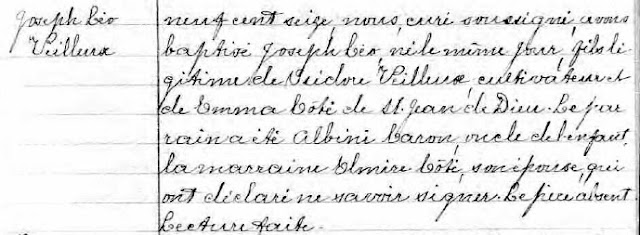 Joseph Léo
Veilleux
neuf cent seize, nous, curé soussigné, avons
baptisé Joseph Léo, né le même jour, fils lé
gitime de Isidore Veilleux, cultivateur et
de Emma Côté de St. Jean de Dieu. Le par
rain a été Albini Caron, oncle de l'enfant,
la marraine Elmire Côté, son épouse, qui
ont déclaré ne savoir signer. Le père absent.
Lecture faite.